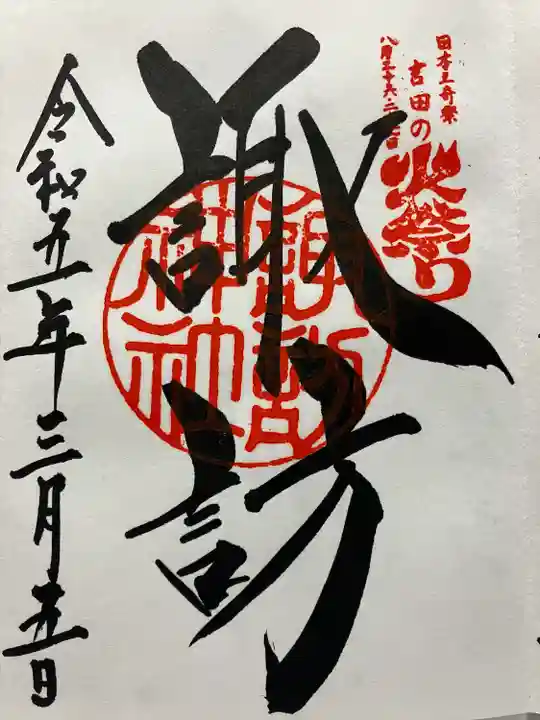 日本三奇祭
吉田の
火祭り
八月二十六・二十七日
諏訪
諏訪神社
令和五年三月五日